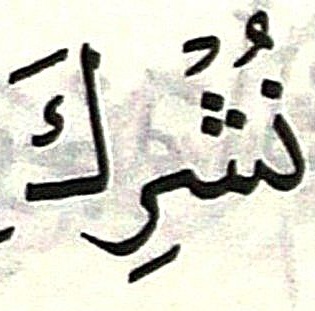 نُشْرِكَ